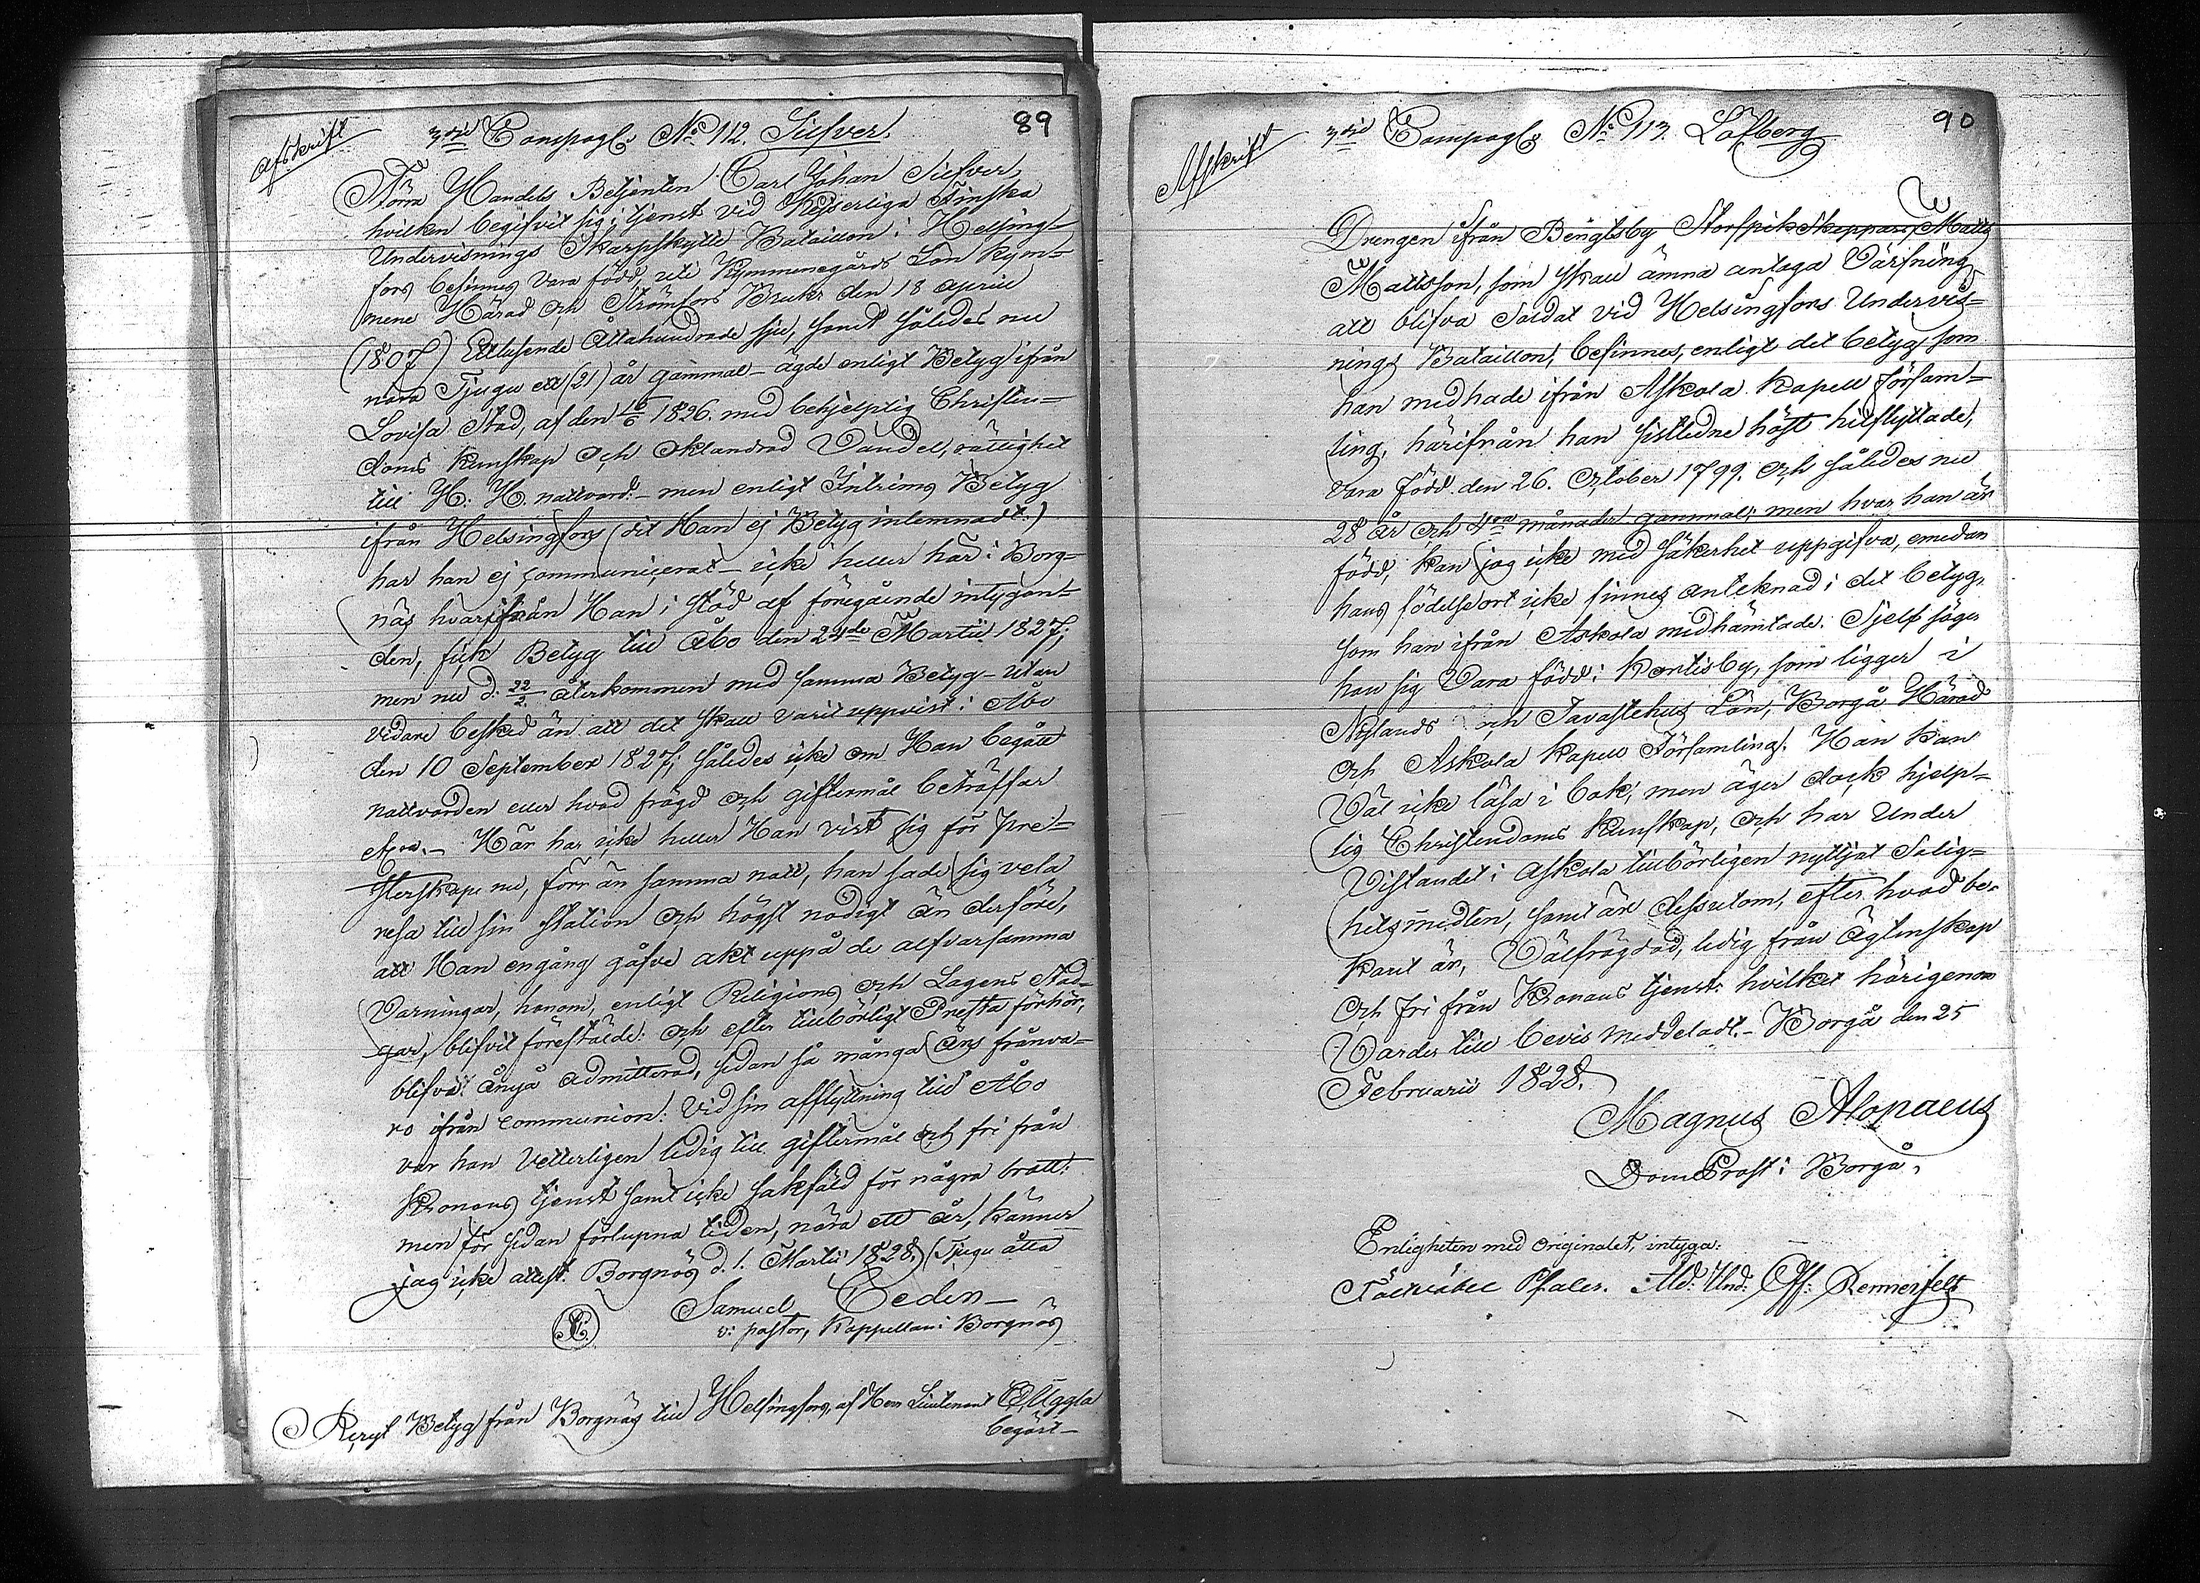 89
Afskrift
3die Compagt. No. 112. Silfver.
Förra Handels Betjenten Carl Johan Silfver,
hvilken begifvit sig i tjenst vid Kejserliga Finska
Undervisnings Skarpskytte Bataillon i Helsing-
fors befinnes vara född uti Kymmenegårds Län Kym-
mene Härad och Strömfors Bruk den 18 April
(1807) Ettusende Åttahundrade sju, samt således nu
nära Tjugu ett (21) år gammal – ägde enligt Betyg ifrån
Lovisa Stad, af den 16/6 1826. med behjelplig Christen-
doms kunskap och oklandrad Vandel, rättighet
till H. H. nattvard: – men enligt Intrims Betyg
ifrån Helsingfors (dit Han ej Betyg inlemnadt.)
har han ej communicerat – icke heller här i Borg-
näs hvarifrån Han i stöd af föregående intygan-
den, fick Betyg till Åbo den 24de Martii 1827;
men nu d. 22/2 återkommen med samma Betyg – utan
vidare besked än att det skall varit uppvist i Åbo
den 10 September 1827; således icke om Han begått
nattvarden eller hvad frägd och giftermål beträffar
– Här har icke heller Han vist sig för Pre-
sterskape nu, förr än samma natt, han sade sig vela
resa till sin station och högst nödigt än derföre,
att Han engång gåfve akt uppå de alfvarsamma
Varningar, honom, enligt Religions och Lagens Stad-
gar, blifvit föreställde: och efter tillbörligt Presta förhör,
blifva ånyo admitterad, sedan så många års frånva-
ro ifrån communion: Vid sin afflyttning till Åbo
var han Vetterligen ledig till giftermål och fri från
Kronans tjenst samt icke sakfäld för några brott:
men för sedan förlupna tiden, nära ett år, känner
jag icke attest. Borgnäs d. 1. Martii 1828. (Tjugu åtta
Samuel Ceder –
v: pastor, Kappellan i Borgnäs
Betyg från Borgnäs till Helsingfors, af Herr Lieutenant Uggla
begärt –
90
Afskrift
3die Compagt. No. 113. Löfberg
Drengen ifrån Bengtsby Storspik Skeppars, Matts
Mattsson, som skall ämna antaga Värfning
att blifva Soldat vid Helsingfors Undervis-
nings Bataillon, befinnes, enligt det betyg som
han medhade ifrån Askola Kapell Försam-
ling, härifrån han sistledne höst hitflyttade,
vara född den 26. October 1799. och således nu
28 år och 4ra månader gammal; men hvar han är
född, kan jag icke med säkerhet uppgifva, emedan
hans födelseort icke finnes anteknad i det betyg,
som han ifrån Askola medhämtade. Sjelf säger
han sig Vara född i Kortisby, som ligger i
Nylands och Tavastehus Län, Borgå Härad
och Askola Kapell Församling. Han kan
Väl icke läsa i bok; men äger dock hjelp-
lig Christendoms kunskap, och har under
Vistandet i Askola tillbörligen nyttjat Salig-
hetsmedlen, samt är dessutom, efter hvad be-
kant är, Välfrägdad, ledig från Äktenskap
och fri från Kronans tjenst: hvilket härigenom
Varder till bevis meddeladt. – Borgå den 25
Februarii 1828.
Magnus Alopaeus
DomProst i Borgå.
Enligheten med Originalet, intyga:
Fältväbel Pfaler. Und: Off: Rennerfelt